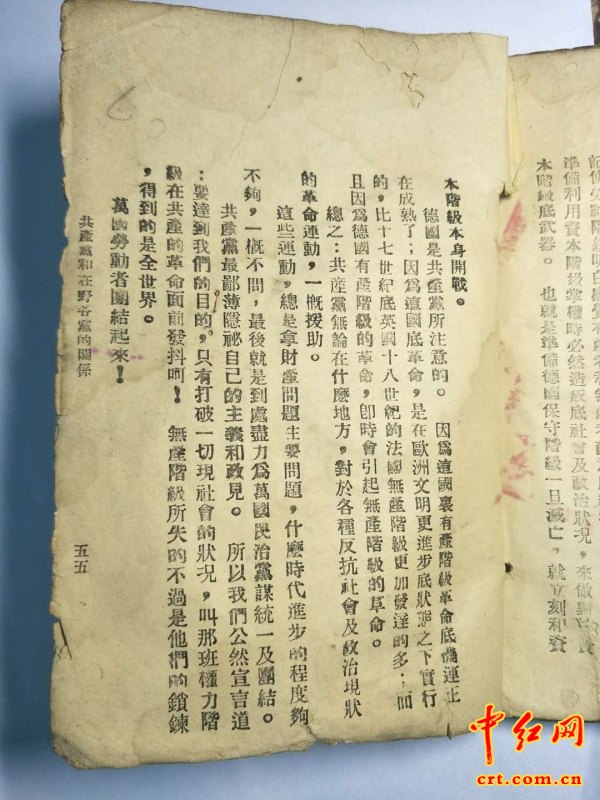 準備利用資本階級掌權時必然造成底社會及政治狀況，來做對抗資
本階級底武器。　也就是準備德國保守階級一旦滅亡，就立刻和資
本階級本身開戰。
德國是共產黨所注意的。　因爲這國裏有產階級革命底機運正
在成熟了；因爲這國底革命，是在歐洲文明更進步底狀態之下實行
的，比十七世紀底英國十八世紀的法國無產階級更加發達的多；而
且因爲德國有產階級的革命，卽時會引起無產階級的革命。
總之：共產黨無論在什麽地方，對於各種反抗社會及政治現狀
的革命運動，一槪援助。
這些運動，總是拿財產問題主要問題，什麽時代進步的程度夠
不夠，一槪不問，最後就是到處盡力爲萬國民治黨謀統一及團結。
共產黨最鄙薄隱祕自己的主義和政見。　所以我們公然宣言道
：要達到我們的目的，只有打破一切現社會的狀況，叫那班權力階
級在共產的革命面前發抖啊！　無產階級所失的不過是他們的鎖鍊
，得到的是全世界。
萬國勞動者團結起來！
共產黨和在野各黨的關係
五五
中红网
crt.com.cn